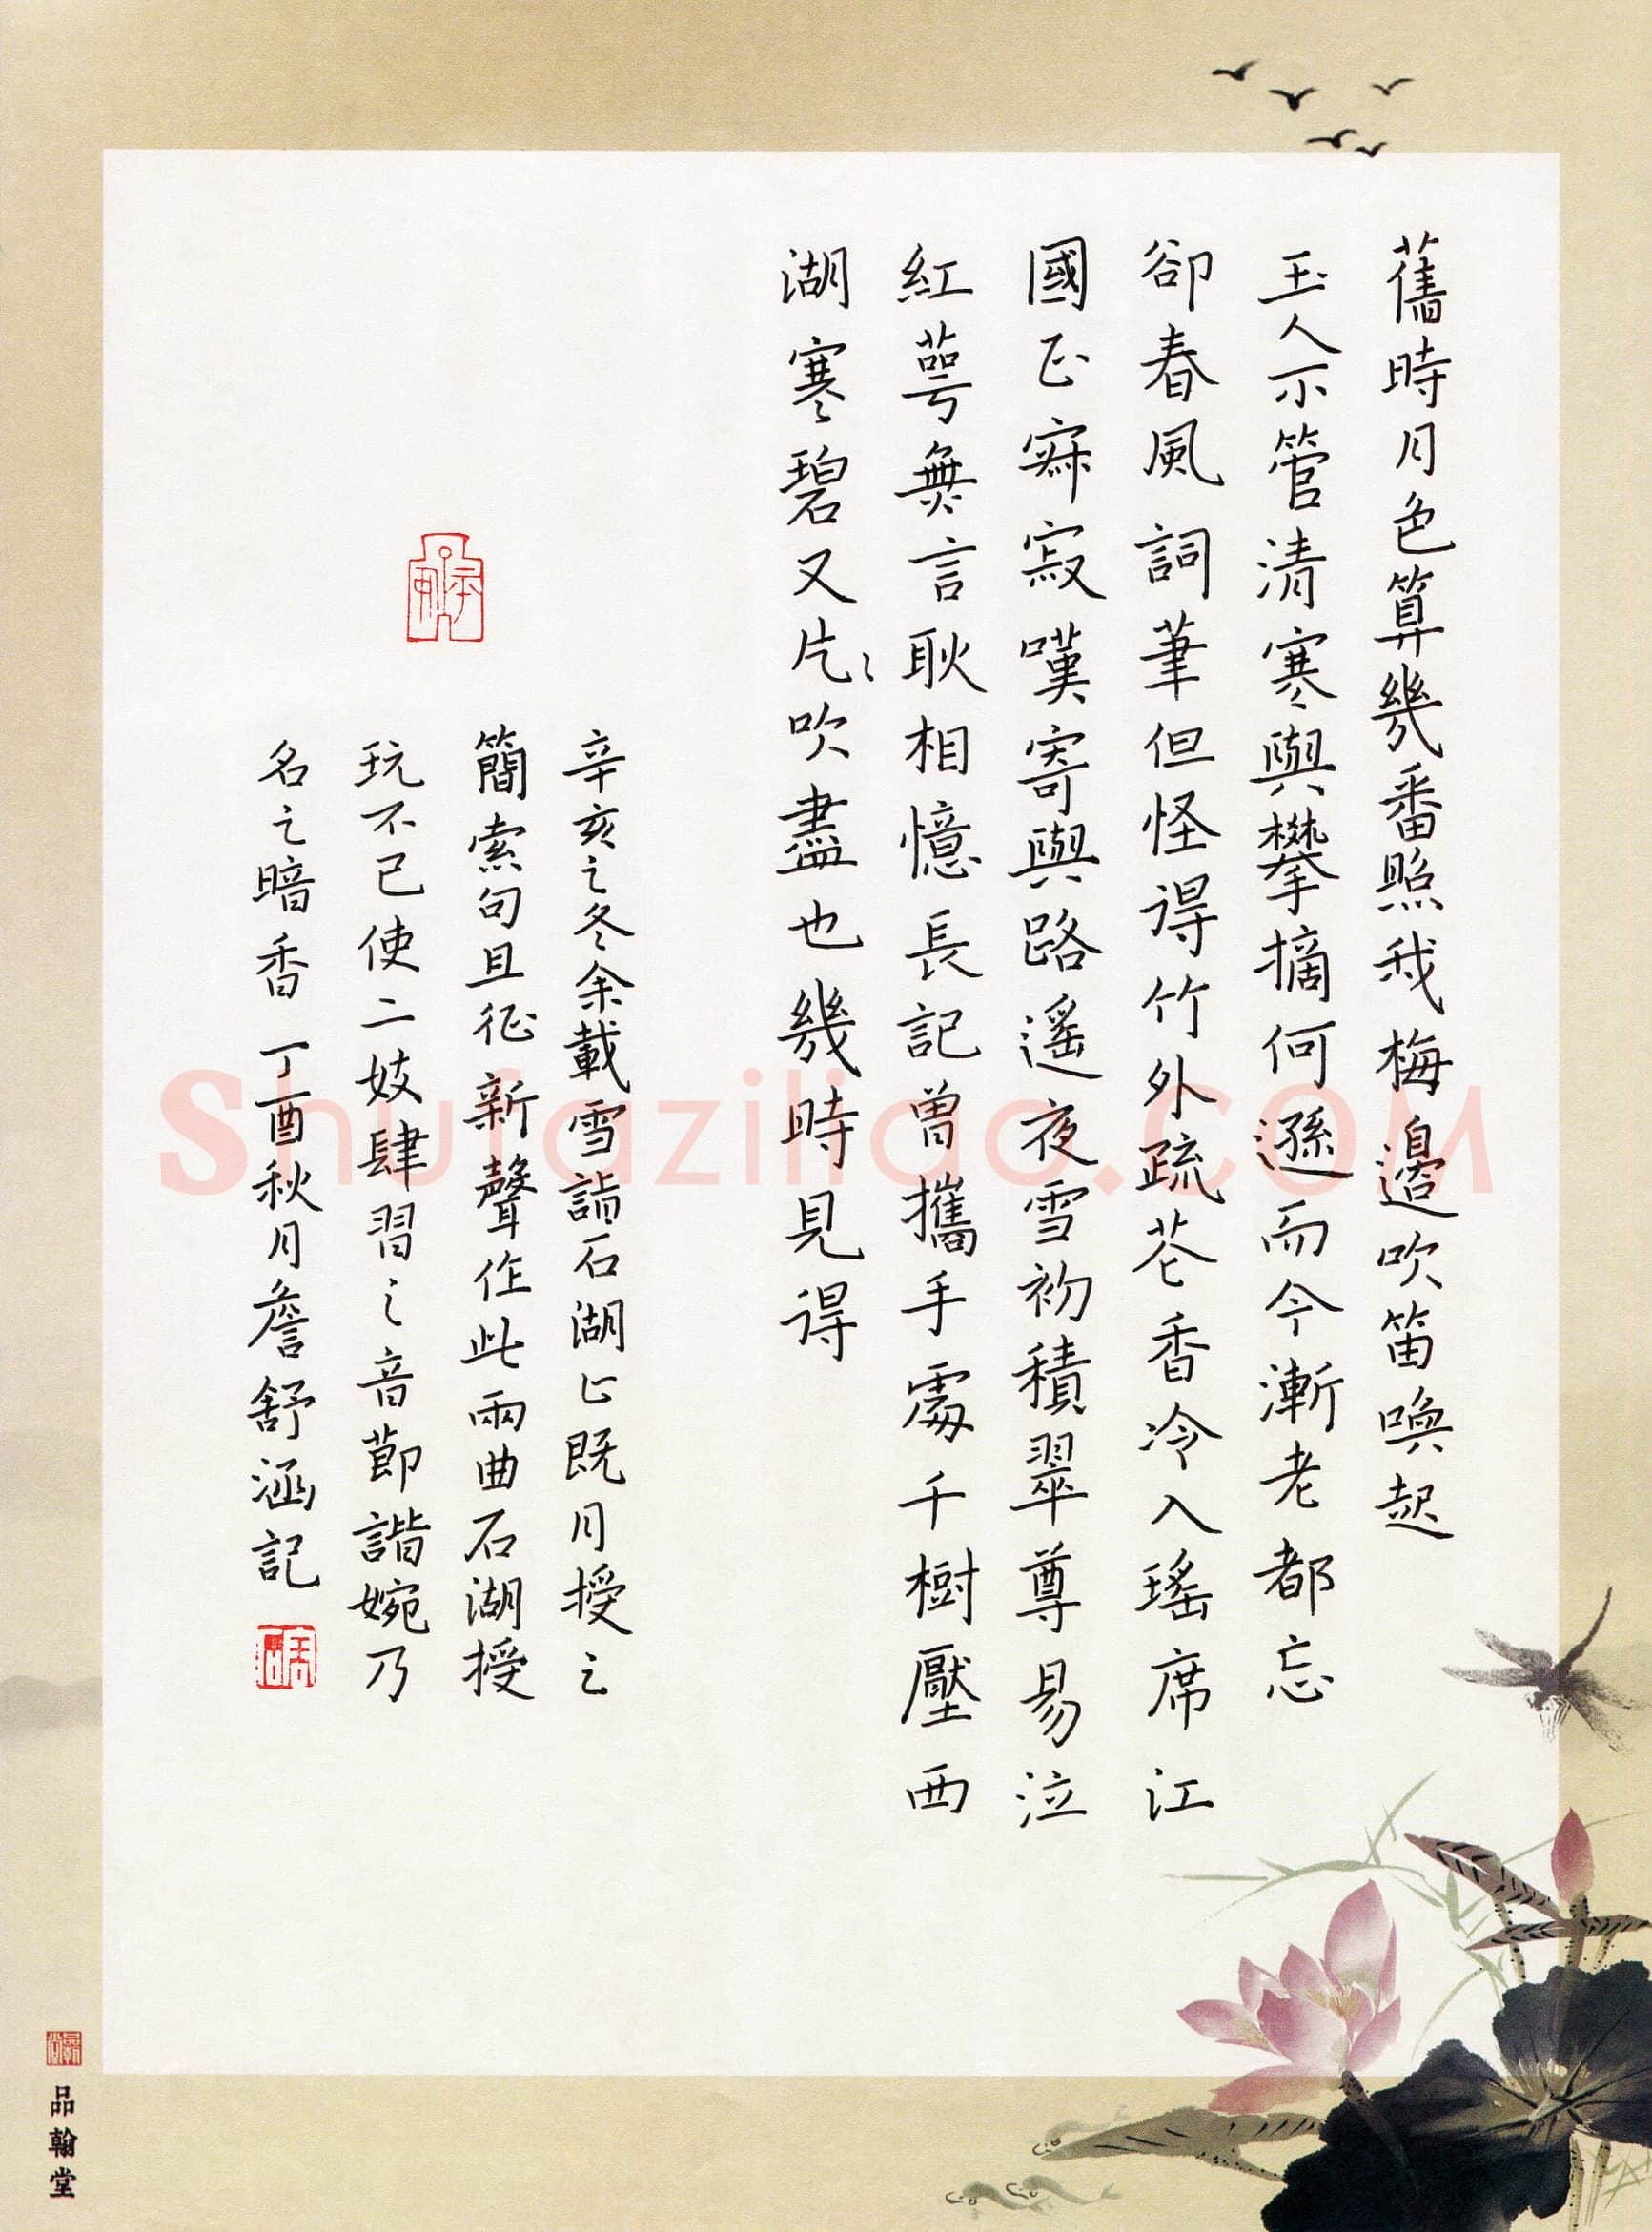 舊時月色算幾番照我梅邊吹笛喚起
玉人不管清寒與攀摘何遜而今漸老都忘
卻春風詞筆但怪得竹外疏花香冷入瑤席江
國正寂寂嘆寄與路遙夜雪初積翠尊易泣
紅萼無言耿相憶長記曾攜手處千樹壓西
湖寒碧又片〻吹盡也幾時見得
辛亥之冬余載雪詣石湖止既月授之
簡索句且征新聲作此兩曲石湖授
玩不已使二妓肆習之音節諧婉乃
名之暗香丁酉秋月詹舒涵記
品翰堂
shufaziliao.COM